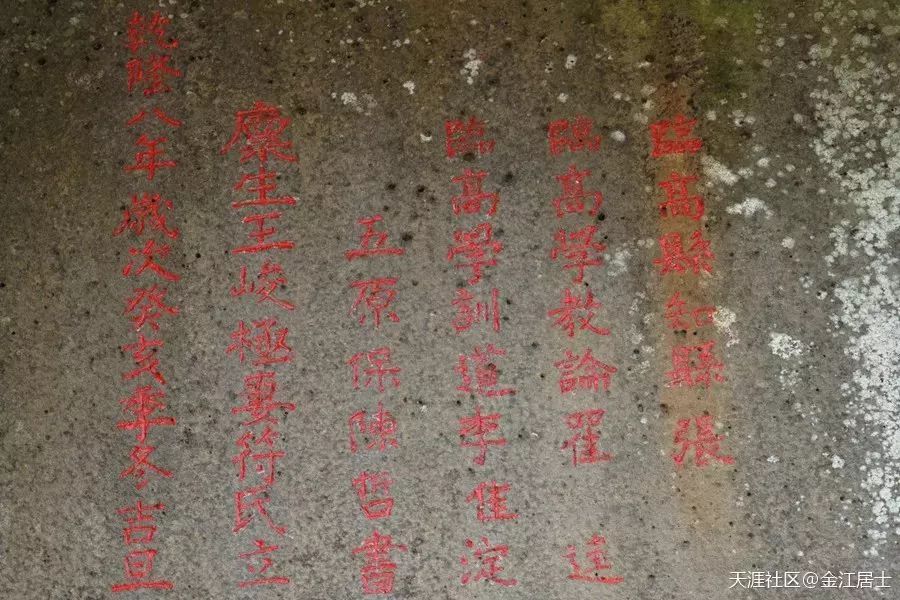 臨高縣知縣張
臨高學教諭翟 逵
臨高學訓道李隹淀
五原保陳哲書
廩生王峻極妻符氏立
乾隆八年歲次癸亥季冬吉旦
天涯社区@金江居士